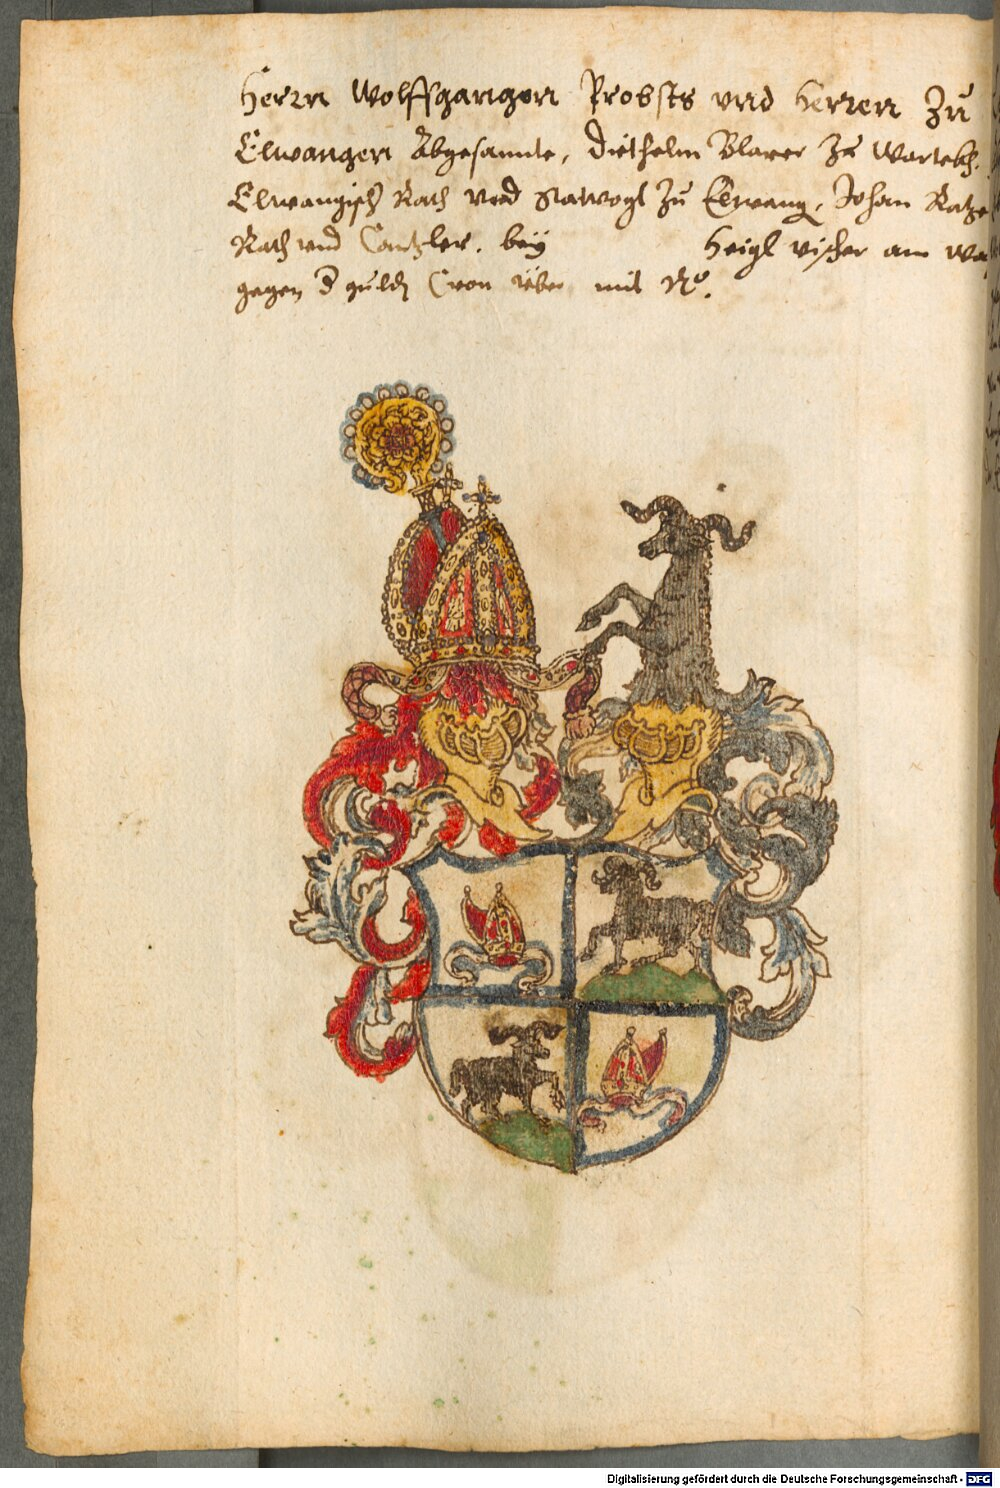 Herrn Wolffgangen Probsts vnd Herren Zu
Elwangen Abgesannte, Diethelm Blarer Zu Wartelsh.
Elwangisch Rath vnd Statvogt Zu Elwang, Johan Ratze
Rath vnd Cantzler. beÿ Heigl vischer am
gegen guld Cron über mit No.
Digitalisierung gefördert durch die Deutsche Forschungsgemeinschaft - DFG